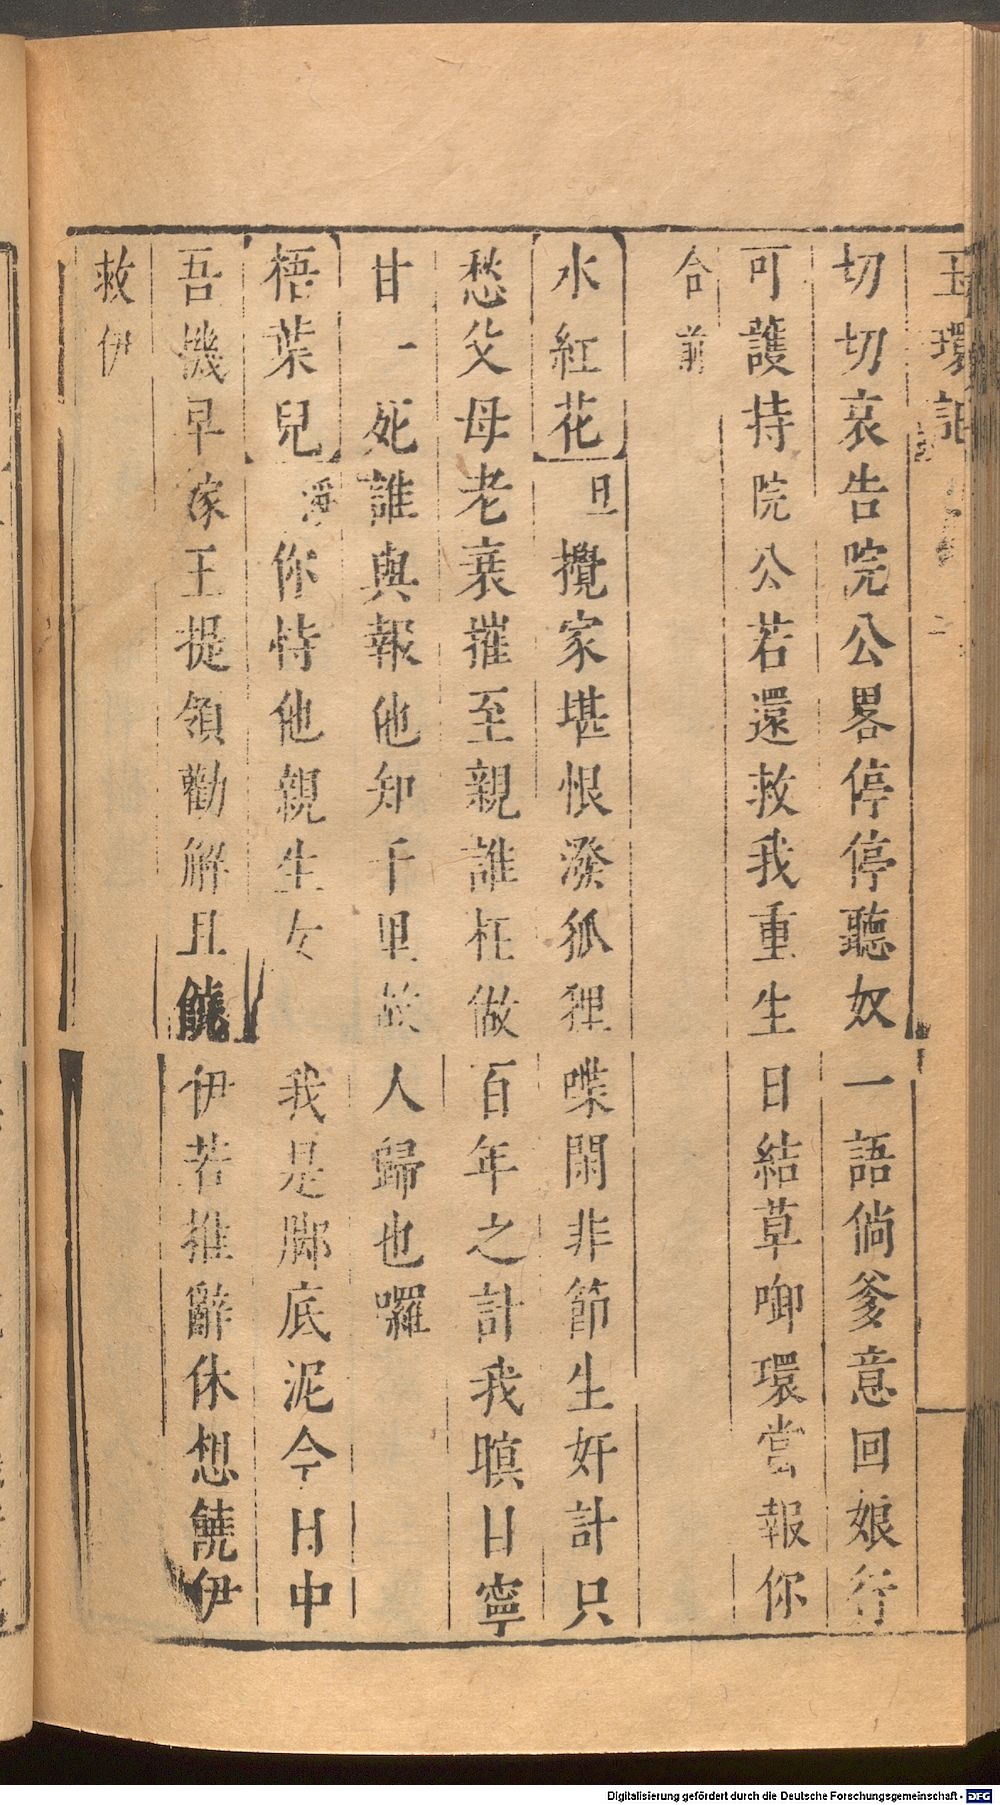 玉環記
切切哀告院公畧停停聽奴一語倘爹意回娘行
可護持院公若還救我重生日結草啣環當報你
合前
水紅花旦攪家堪恨潑狐狸喋閑非節生奸計只
愁父母老衰摧至親誰枉做百年之計我瞑目寧
甘一死誰與報他知千里故人歸也囉
梧葉兒淨你恃他親生女我是脚底泥今日中
吾機早嫁王提領勸解且饒伊若推辭休想饒伊
救伊
Digitalisierung gefördert durch die Deutsche Forschungsgemeinschaft - DFG